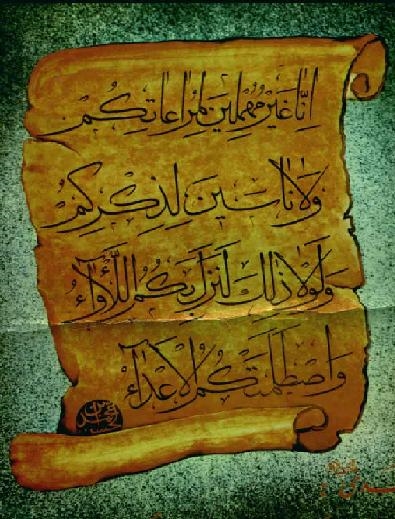 اِنّا غَیْرُ مُهْمِلینَ لِمُراعاتِکُمْ
وَلاٰ ناسینَ لِذِکْرِکُمْ
وَلَوْلاٰ ذٰلِكَ لَنَزَلَ بِکُمُ اللَّأْوٰاءُ
وَاصْطَلَمَتْکُمُ الْاَعْدٰاءُ